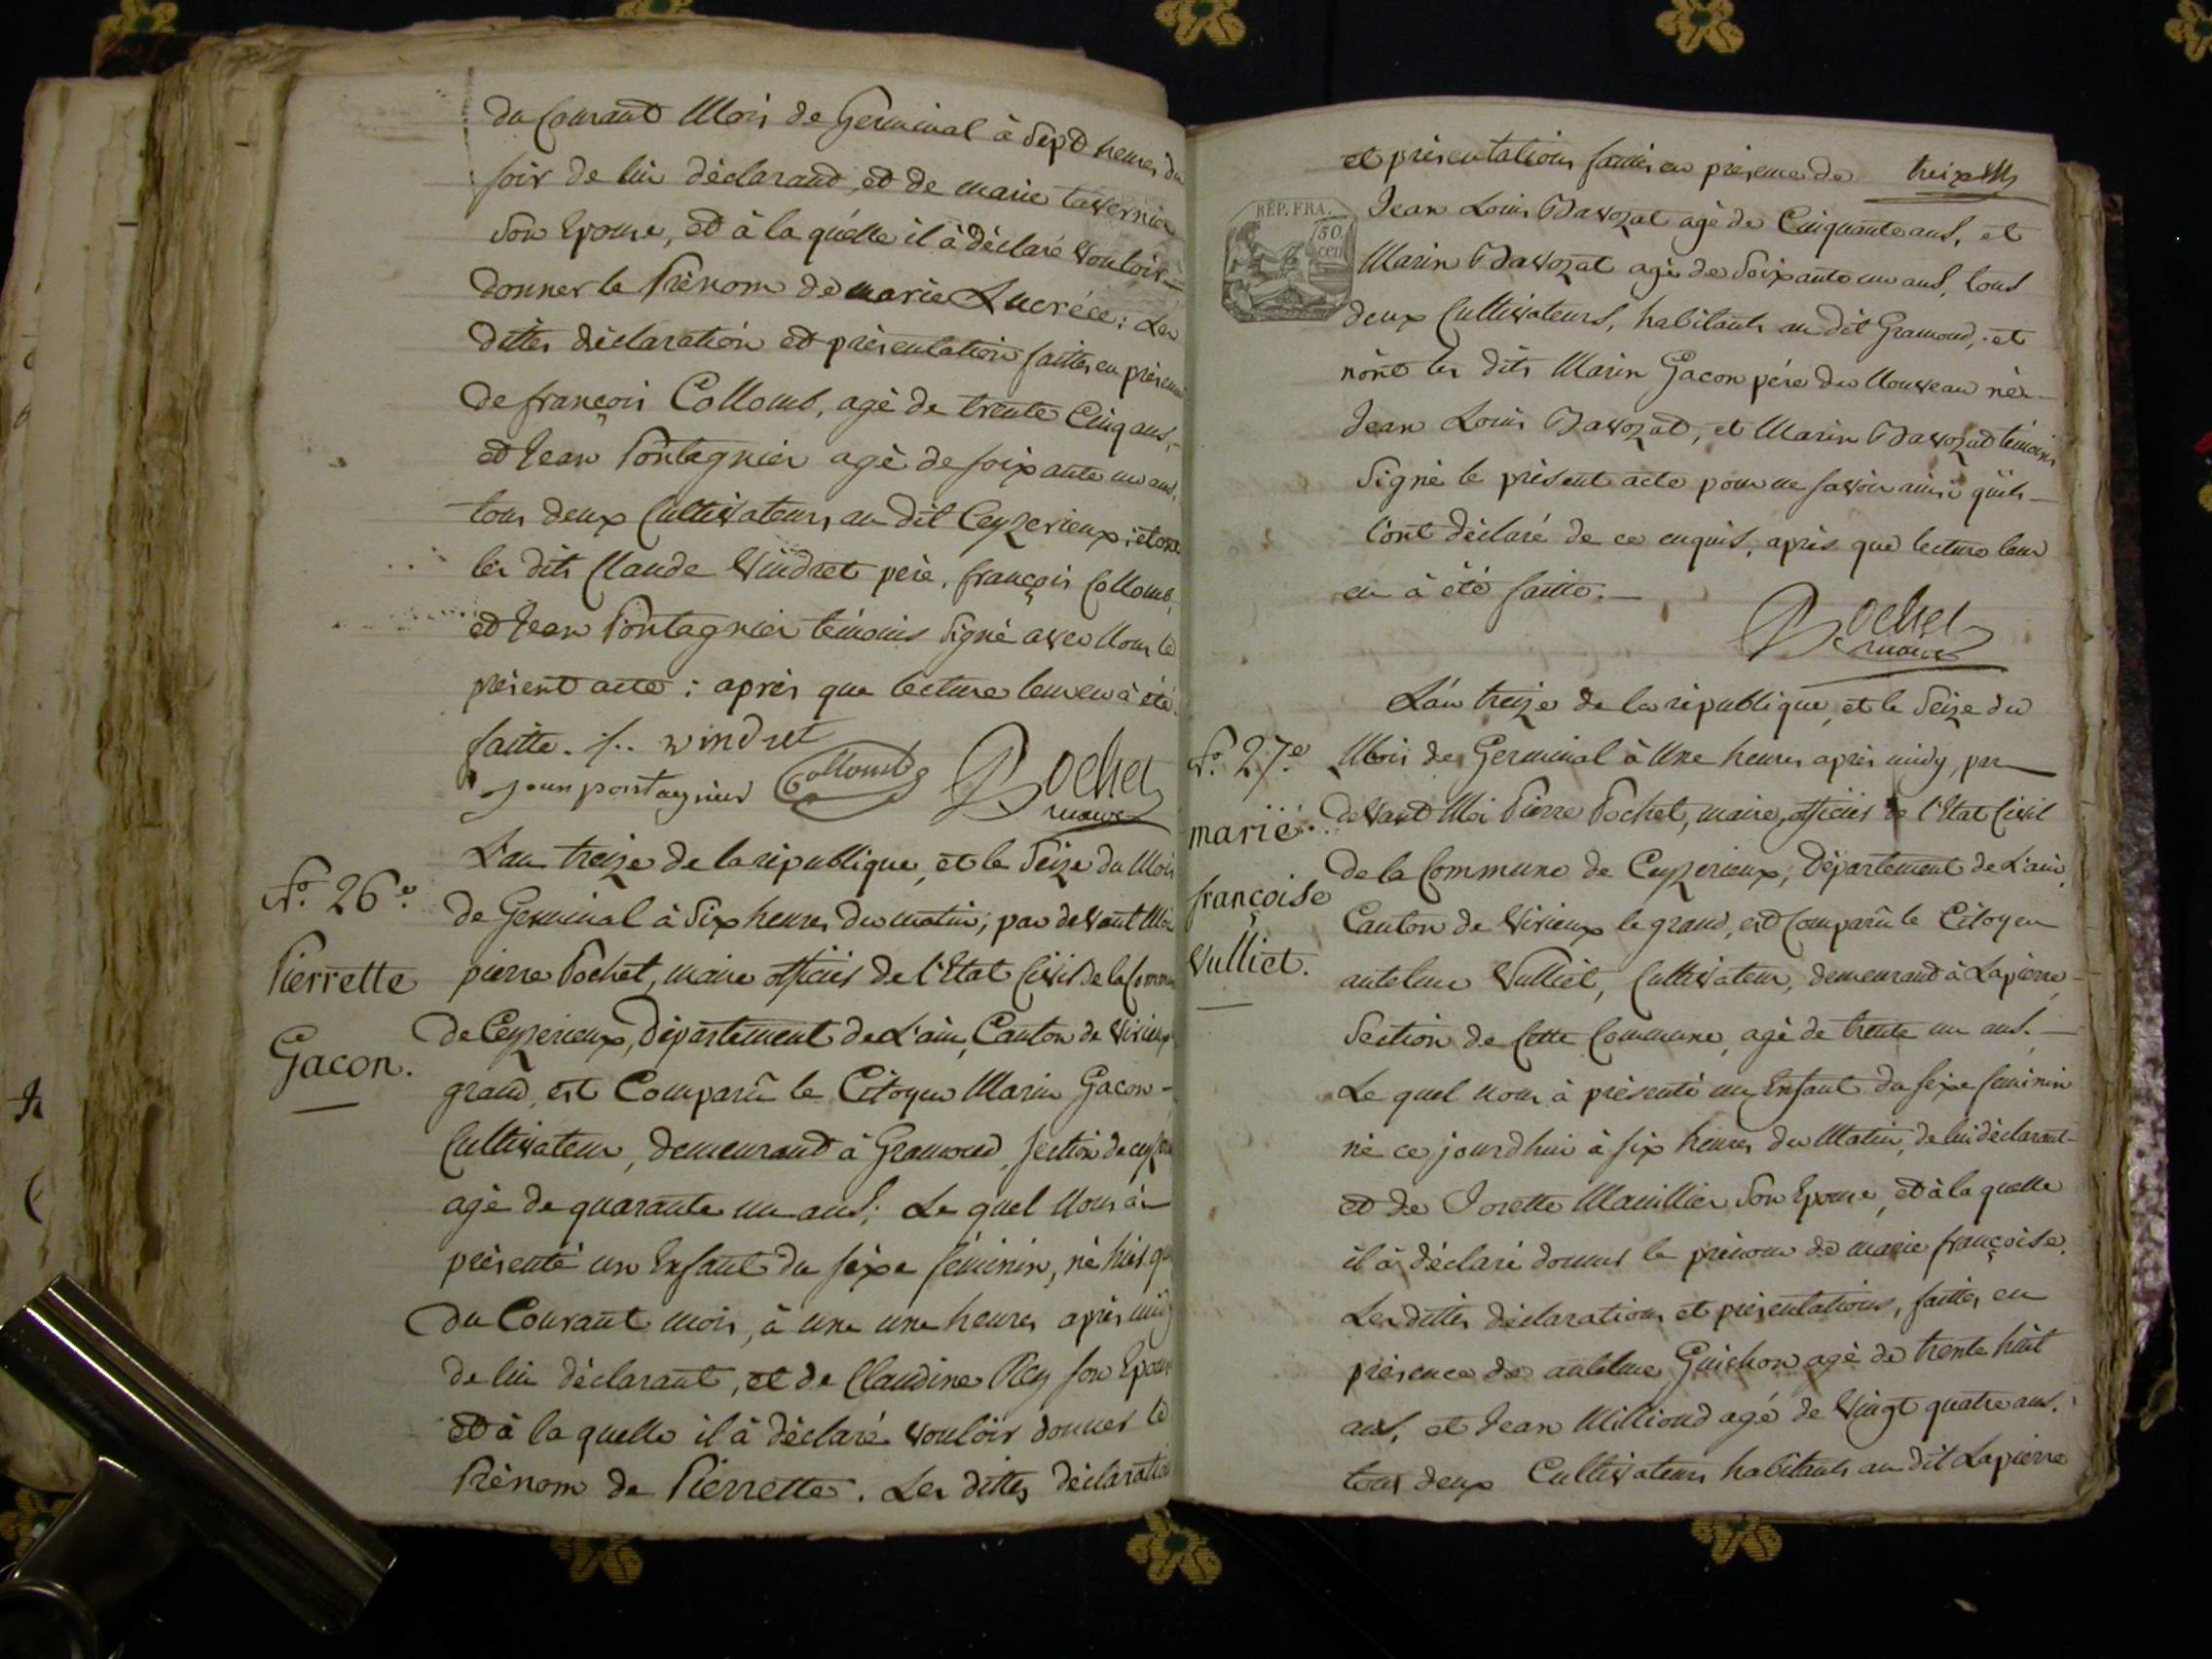 du Courant Mois de Germinal à Sept heures du
soir de lui déclarant, et de marie tavernier
Son Epouse, et à la quélle il à déclaré vouloir
donner le Prénom de marie Lucréce; Les
dittes déclaration et présentation faittes en présence
de françois Collomb, agé de trente Cinq ans,
et Jean Pontagnier agé de soixante un ans,
tous deux Cultivateurs au dit Ceyzerieux; et ont
les dits Claude Vindret pére, françois Collomb,
et Jean Pontagnier témoins Signé avec Nous le
présent acte; aprés que lecture leur en à été
faitte. /. vindret
jean pontagnier Collomb Pochet
maire
N.o 26.e
Pierrette
Gacon.
L'an treize de la république, et le Seize du Mois
de Germinal à Six heures du matin; par devant Moi
pierre Pochet, maire officier de l'Etat Civil de la Commune
de Ceyzerieux, Département de L'ain, Canton de Virieux
grand, est Comparû le Citoyen Marin Gacon
Cultivateur, demeurant à Gramond, section de ceyzerieux
agé de quarante un ans; Le quel Nous à
présenté un Enfant du séxe féminin, né hier
du Courant mois, à une une heures aprés midy
de lui déclarant, et de Claudine Rey son Epouse
et à la quelle il à déclaré vouloir donner le
Prénom de Pierrette. Les dittes déclaration
et présentations faittes en présence de
REP. FRA.
50
cen
Jean Louis Davozat agé de Cinquante ans, et
Marin Davozat agé de Soixante un ans, tous
deux Cultivateurs, habitants au dit Gramond, et
n'ont les dits Marin Gacon pére du Nouveau né
Jean Louis Davozat, et Marin Davozat témoins
Signé le présent acte pour ne savoir ainsi qu'ils
l'ont déclaré de ce enquis, aprés que lecture leur
en à été faitte.
Pochet
maire
N.o 27.e
marie
françoise
Vulliet.
L'an treize de la république, et le Seize du
Mois de Germinal à Une heures aprés midy, par
devant Moi Pierre Pochet, maire, officier de l'Etat Civil
de la Commune de Ceyzerieux, Département de L'ain,
Canton de Virieux le grand, est Comparû le Citoyen
antelme Vulliet, Cultivateur, demeurant à Lapierre
Section de Cette Commune, agé de trente un ans.
Le quel nous à présenté un Enfant du séxe féminin
né ce jourd'hui à six heures du Matin, de lui déclarant
et de Josette Maillier Son Epouse, et à la quelle
il à déclaré donner le prénom de marie françoise.
Les dittes déclarations et présentations, faittes en
présence de antelme Guichon agé de trente huit
ans, et Jean Milliond agé de Vingt quatre ans.
tous deux Cultivateurs habitants au dit Lapierre